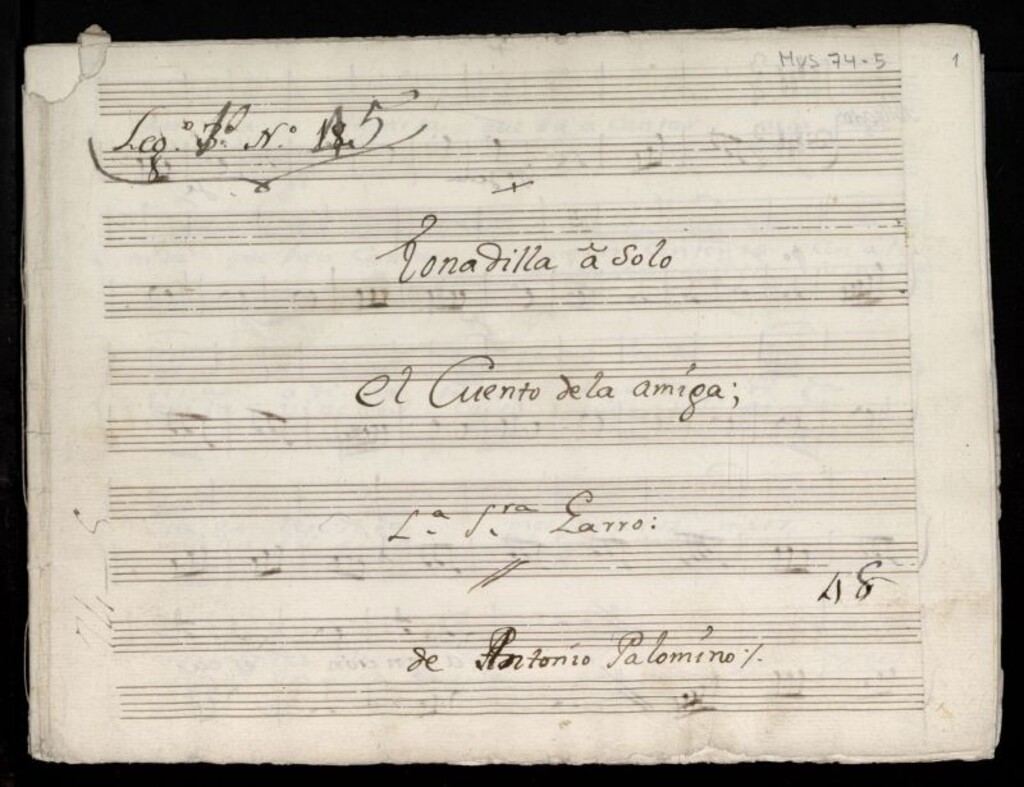 Mus 74-5
1
Leg.º N.º
8
Tonadilla â Solo
el Cuento dela amiga;
L.ª S.ra Garro:
48
de Antonio Palomino./.